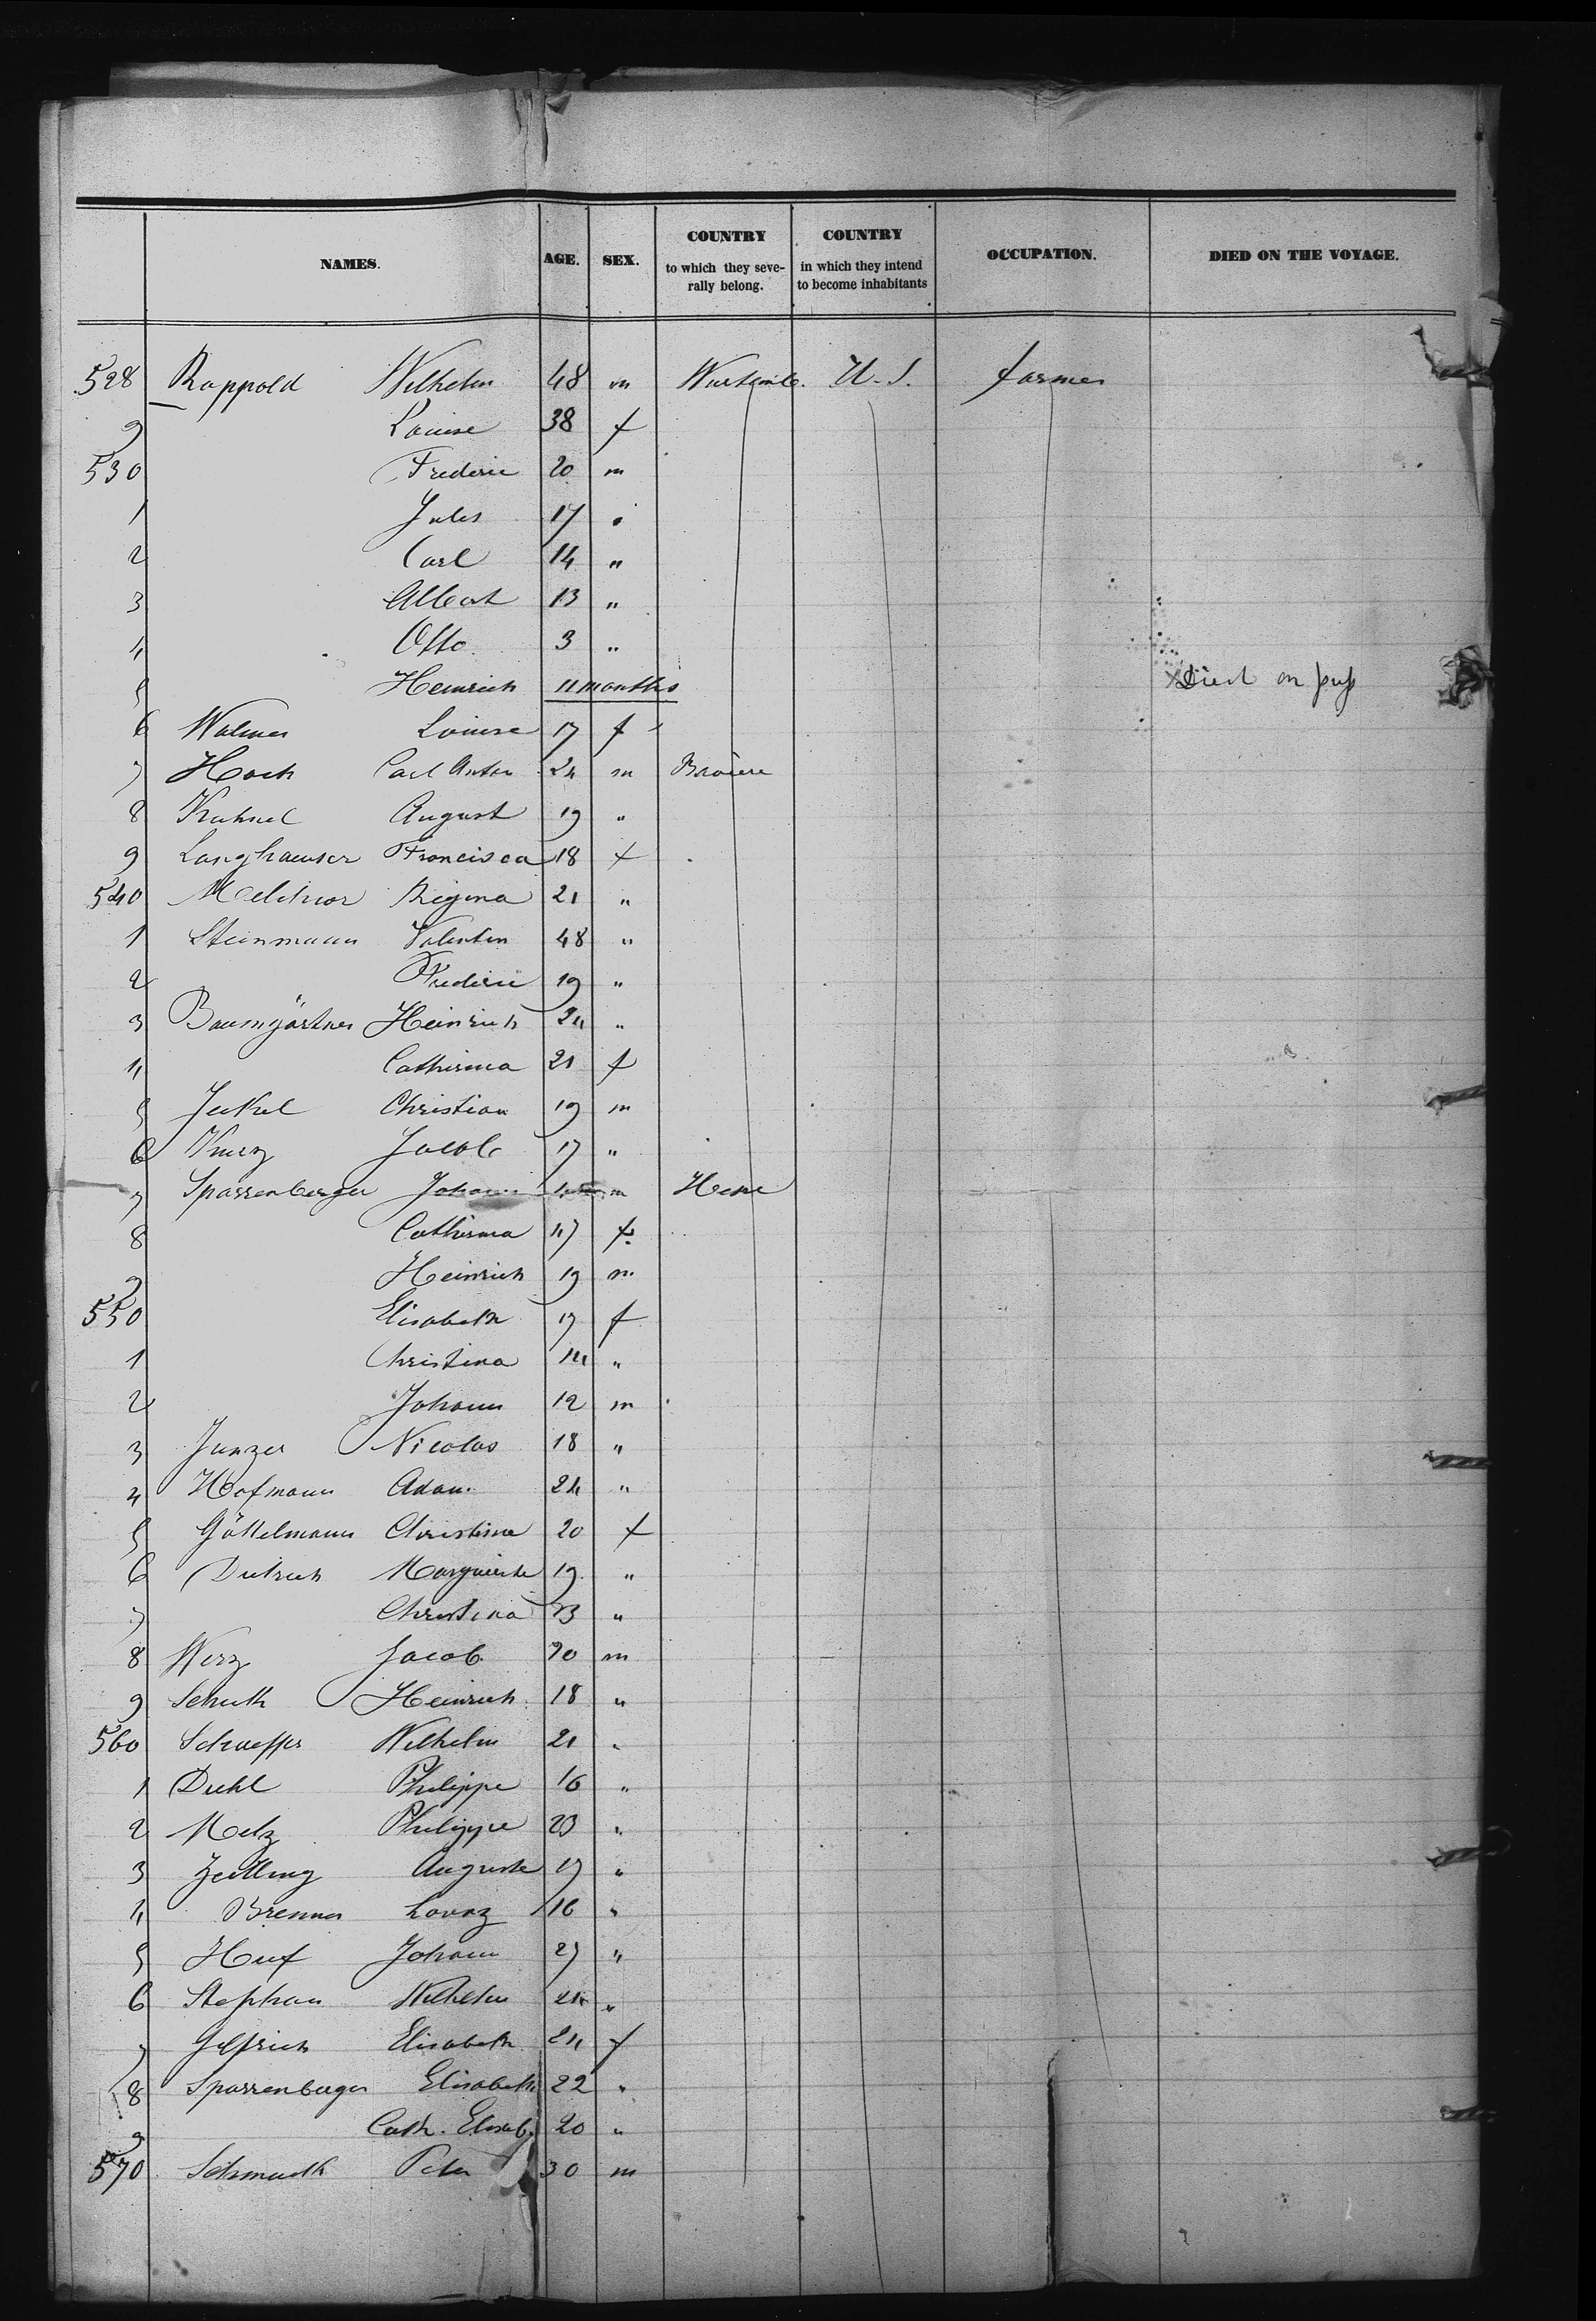 NAMES. AGE. SEX. COUNTRY to which they severally belong. COUNTRY in which they intend to become inhabitants OCCUPATION. DIED ON THE VOYAGE.
528 Rappold Wilhelm 48 m Wurtemb. U. S. farmer
9 Louise 38 f
530 Frederic 20 m
1 Jules 17 "
2 Carl 14 "
3 Albert 13 "
4 Otto 3 "
5 Heinrich 11 months Died on
6 Louise 17 f
7 Hoch Carl Anton 24 m Bavière
8 Kuhnel August 19 "
9 Langhaeuser Francisca 18 f
540 Melchior Regina 21 "
1 Steinmann Valentin 48 "
2 Frederic 19 "
3 Baumgärtner Heinrich 24 "
4 Catherina 21 f
5 Jeckel Christian 19 m
6 Kurz Jacob 17 "
7 Sparrenberger Johann m Hesse
8 Catherina 47 f
9 Heinrich 19 m
550 Elisabeth 17 f
1 Christina 14 "
2 Johann 12 m
3 Junzer Nicolas 18 "
4 Hofmann Adam 24 "
5 Göttelmann Christina 20 f
6 Dietrich Marguerite 19 "
7 Christina 23 "
8 Werz Jacob 20 m
9 Schuth Heinrich 18 "
560 Schaeffer Wilhelm 21 "
1 Diehl Philippe 16 "
2 Metz Philippe 23 "
3 Zeitling Auguste 19 "
4 Brenner Lorenz 16 "
5 Huf Johann 27 "
6 Stephan Wilhelm 24 "
7 Gelfrich Elisabeth 24 f
8 Sparrenberger Elisabeth 22 "
9 Cath. Elisab. 20 "
570 Schmudth Peter 30 m